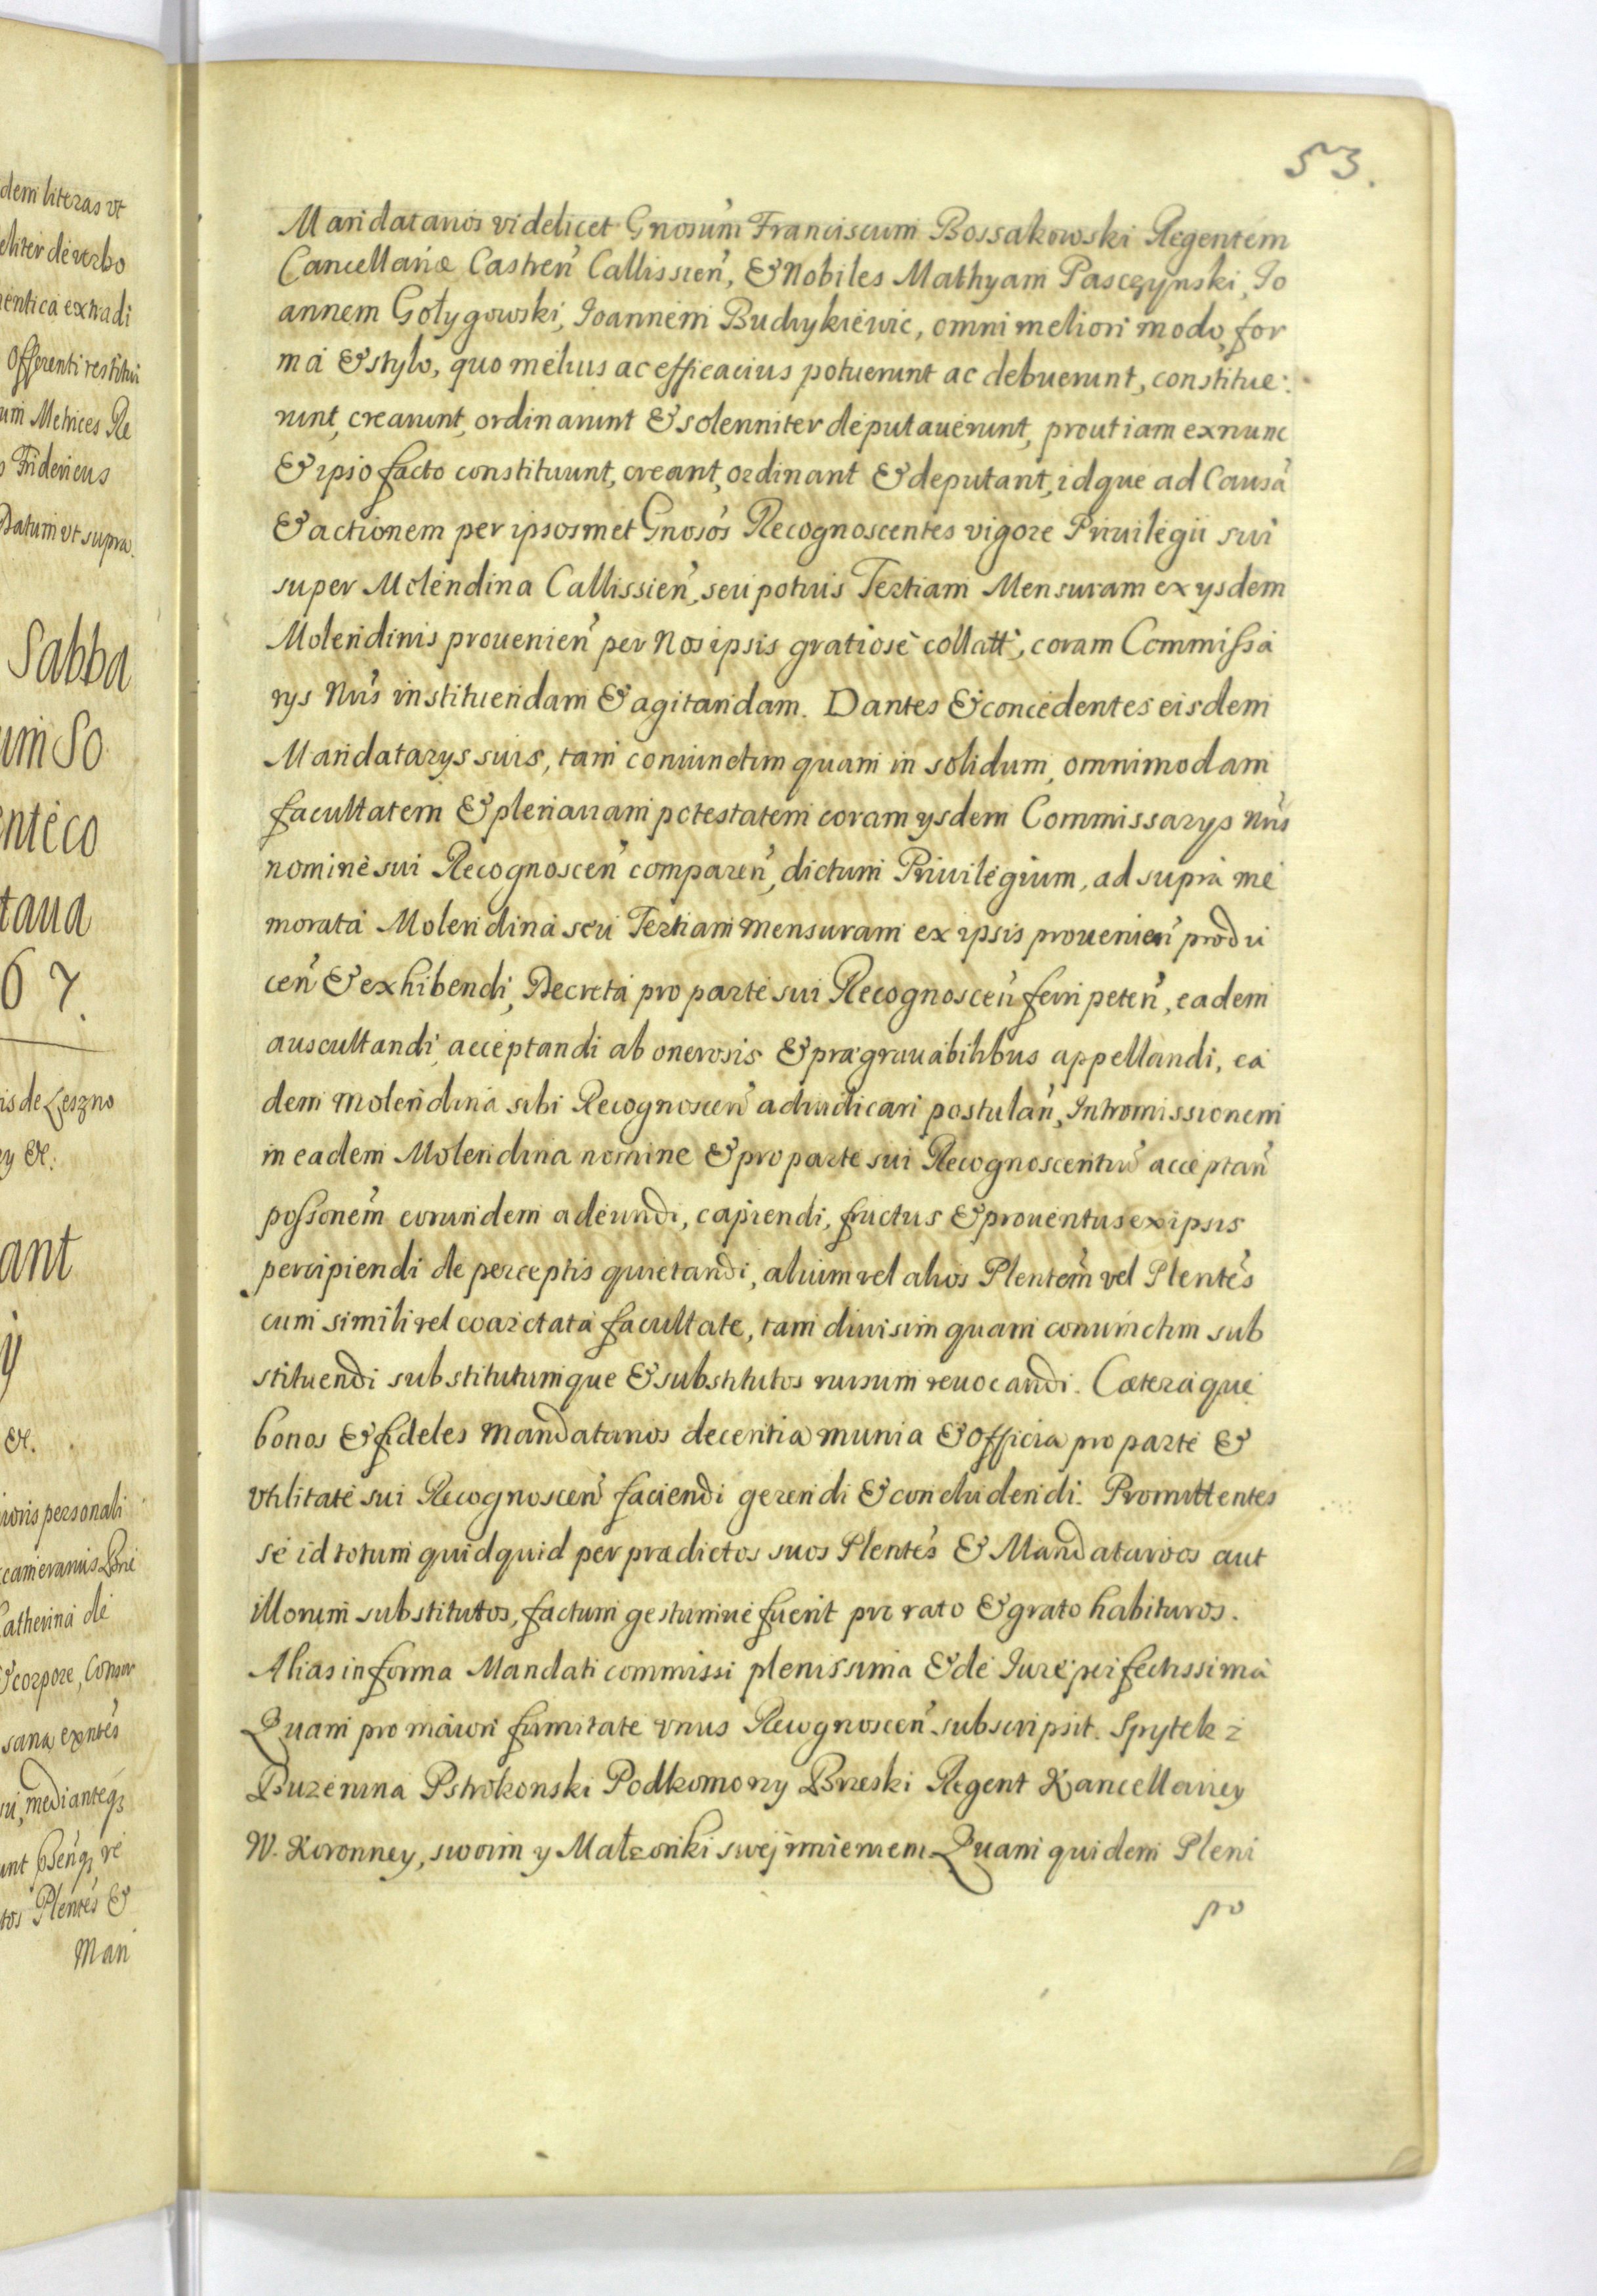 dem literas vt
eliter de verbo
entica extradi
Offerenti restitui
um Metrices Re
Fridericus
Datum vt supra.
Sabba
um So
enteco
taua
67.
is de Leszno
y &.
ant
ij
&.
ioris personali
Catherina de
& corpore, Compar
sana, extes
ui, mediantéq3
tos Plentes &
Man
53.
Mandatarios videlicet Gnosum Franciscum Bossakowski Regentem
Cancellariæ Castren Callissien, & Nobiles Mathyam Pasczynski, Io
annem Gołygowski, Ioannem Budrykiewic, omni meliori modo, for
ma & stylo, quo melius ac efficacius potuerunt ac debuerunt, constitue:
runt, crearunt, ordinarunt & solenniter deputauerunt, prout iam ex nunc
& ipso facto constituunt, creant, ordinant & deputant, idque ad Causa
& actionem per ipsosmet Gnosos Recognoscentes vigore Priuilegii sui
super Molendina Callissien, seu potius Tertiam Mensuram ex ysdem
Molendinis prouenien per Nos ipsis gratiose collatt, coram Commissa
rys Nris instituendam & agitandam. Dantes & concedentes eisdem
Mandatarys suis, tam coniunctim quam in solidum, omnimodam
facultatem & plenariam potestatem coram ysdem Commissarys Nris
nomine sui Recognoscen comparen, dictum Priuilegium, ad supra me
morata Molendina seu Tertiam mensuram ex ipsis prouenien produ
cen & exhibendi, Decreta pro parte sui Recognoscen ferri peten, eadem
auscultandi, acceptandi ab onerosis & prægrauabilibus appellandi, ea
dem molendina sibi Recognoscen adiudicari postulan, Intromissionem
in eadem Molendina nomine & pro parte sui Recognoscentiu acceptan
possionem eorundem adeundi, capiendi, fructus & prouentus ex ipsis
percipiendi de perceptis quietandi, alium vel alios Plentem vel Plentes
cum simili vel coarctata facultate, tam diuisim quam coniunctim sub
stituendi substitutumque & substitutos rursum reuocandi. Cæteraque
bonos & fideles mandatarios decentia munia & officia pro parte &
vtilitate sui Recognoscen faciendi gerendi & concludendi. Promittentes
se id totum quidquid per prædictos suos Plentes & Mandatarios aut
illorum substitutos, factum gestumue fuerit pro rato & grato habituros.
Alias in forma Mandati commissi plenissima & de Iure perfectissima
Quam pro maiori firmitate vnus Recognoscen subscripsit. Spytek z
Buzenina Pstrokonski Podkomorzy Brzeski Regent Kancellariey
W. Koronney, swoim y Małzonki swej imieniem Quam quidem Pleni
po